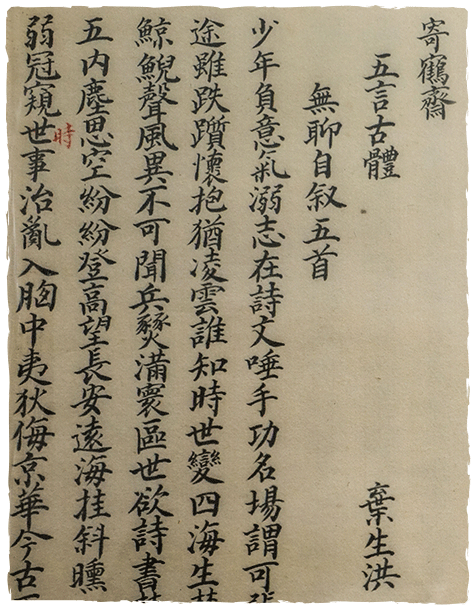 寄鶴齋
五言古體 棄生洪
無聊自叙五首
少年負意氣溺志在詩文唾手功名場謂可
途雖跌躓懷抱猶凌雲誰知時世變四海生
鯨鯢聲風異不可聞兵燹滿寰區世欲詩書
五內塵思空紛紛登高望長安遠海挂斜曛
時
弱冠窺世事治亂入胸中夷狄侮京華今古